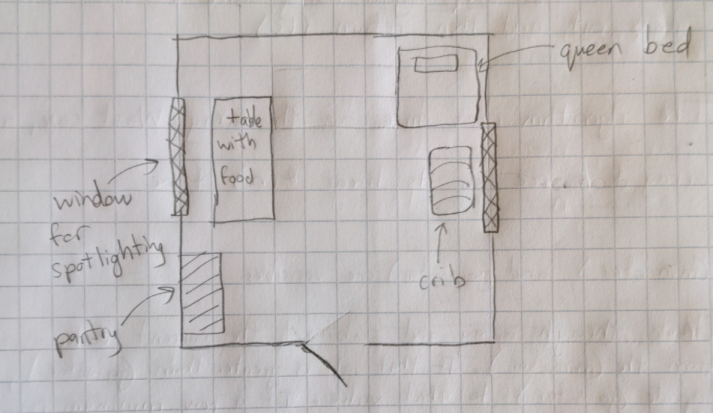 queen bed
table
with
food
window
for
spotlighting
crib
pantry